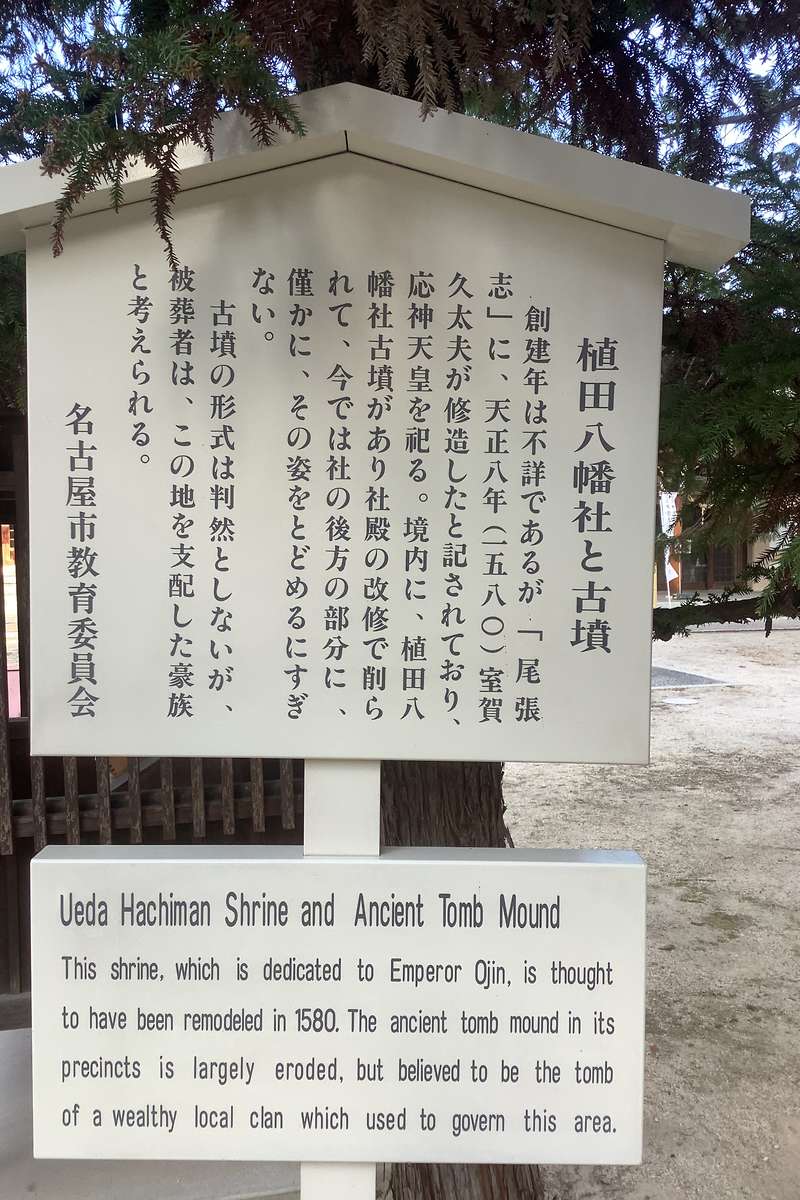 植田八幡社と古墳
創建年は不詳であるが「尾張
志」に、天正八年(一五八〇)室賀
久太夫が修造したと記されており、
応神天皇を祀る。境内に、植田八
幡社古墳があり社殿の改修で削ら
れて、今では社の後方の部分に、
僅かに、その姿をとどめるにすぎ
ない。
古墳の形式は判然としないが、
被葬者は、この地を支配した豪族
と考えられる。
名古屋市教育委員会
Ueda Hachiman Shrine and Ancient Tomb Mound
This shrine, which is dedicated to Emperor Ojin, is thought
to have been remodeled in 1580. The ancient tomb mound in its
precincts is largely eroded, but believed to be the tomb
of a wealthy local clan which used to govern this area.